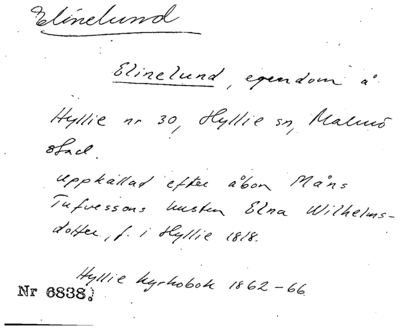 Elinelund
Elinelund, egendom å
Hyllie nr 30, Hyllie sn, Malmö
stad.
uppkallad efter åbon Måns
Tufvessons hustru Elna Wilhelms-
dotter, f. i Hyllie 1818.
Hyllie kyrkobok 1862-66
Nr 6838.